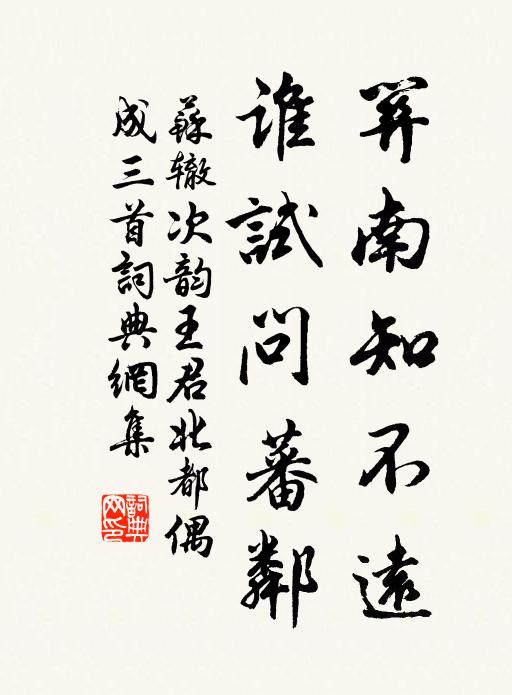 筭南知不遠
誰試問蕃鄰
蘇辙次韵王君北都偶
成三首詞典網集
詞典网印